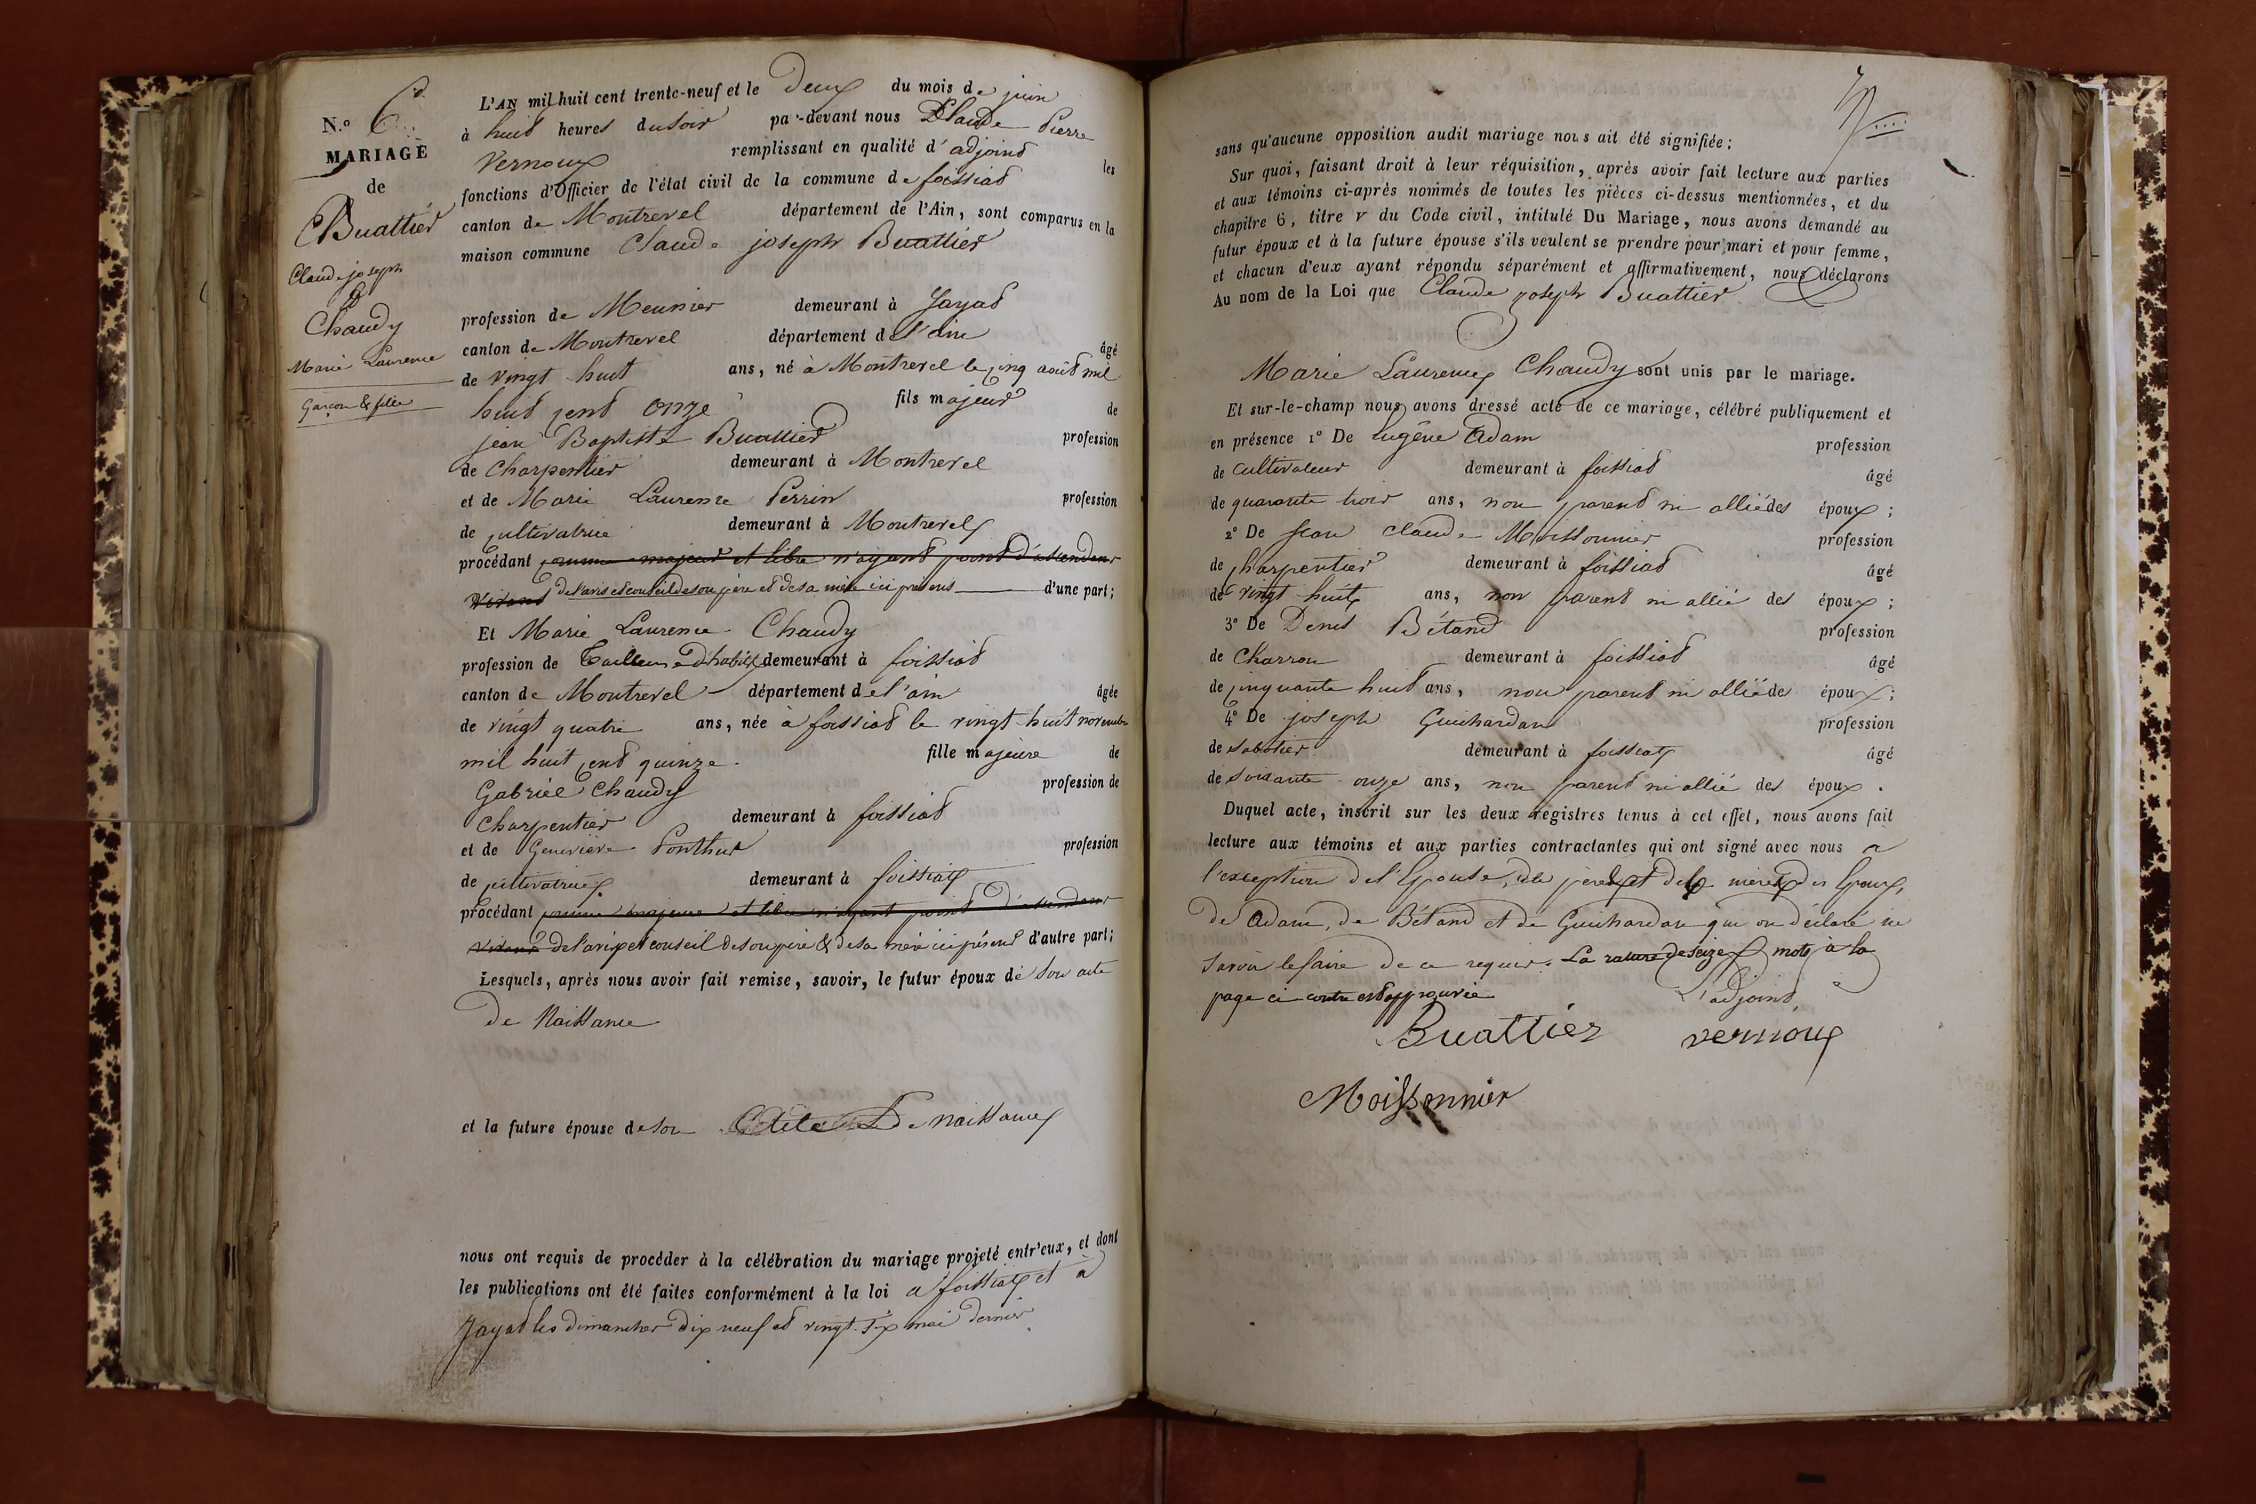 N.o 6
MARIAGE
de
Buattier
Claude joseph
&
Chaudy
Marie Laurence
Garçon & fille
L'AN mil huit cent trente-neuf et le deux du mois de juin
à huit heures du soir par-devant nous Claude Pierre
Vernoux remplissant en qualité d'adjoint les
fonctions d'Officier de l'état civil de la commune de foissiat
canton de Montrevel département de l'Ain, sont comparus en la
maison commune Claude joseph Buattier
profession de Meunier demeurant à Jayat
canton de Montrevel département de l'ain âgé
de vingt huit ans, né à Montrevel le cinq août mil
huit cent onze fils majeur de
jean Baptiste Buattier profession
de Charpentier demeurant à Montrevel
et de Marie Laurence Perrin profession
de cultivatrice demeurant à Montrevel
procédant comme majeur et libre n'ayant point d'ascendans
vivans de l'avis et conseil de son père et de sa mère ici présens d'une part;
Et Marie Laurence Chaudy
profession de Tailleuse d'habits demeurant à foissiat
canton de Montrevel département de l'ain âgée
de vingt quatre ans, née à foissiat le vingt huit novembre
mil huit cent quinze fille majeure de
Gabriel Chaudy profession de
Charpentier demeurant à foissiat
et de Geneviève Ponthus profession
de cultivatrice demeurant à foissiat
procédant comme majeure et libre n'ayant point d'ascendans
vivans de l'avis et conseil de son père & de sa mère ici présens d'autre part;
Lesquels, après nous avoir fait remise, savoir, le futur époux de son acte
de Naissance
et la future épouse de son acte de naissance
nous ont requis de procéder à la célébration du mariage projeté entr'eux, et dont
les publications ont été faites conformément à la loi à foissiat et à
Jayat les dimanches dix neuf et vingt six mai dernier
sans qu'aucune opposition audit mariage nous ait été signifiée;
Sur quoi, faisant droit à leur réquisition, après avoir fait lecture aux parties
et aux témoins ci-après nommés de toutes les pièces ci-dessus mentionnées, et du
chapitre 6, titre v du Code civil, intitulé Du Mariage, nous avons demandé au
futur époux et à la future épouse s'ils veulent se prendre pour mari et pour femme,
et chacun d'eux ayant répondu séparément et affirmativement, nous déclarons
Au nom de la Loi que Claude joseph Buattier
&
Marie Laurence Chaudy sont unis par le mariage.
Et sur-le-champ nous avons dressé acte de ce mariage, célébré publiquement et
en présence 1o De Eugène Adam profession
de cultivateur demeurant à foissiat âgé
de quarante trois ans, non parent ni allié des époux;
2o De Jean Claude Moissonnier profession
de charpentier demeurant à foissiat âgé
de vingt huit ans, non parent ni allié des époux;
3o De Denis Bétand profession
de Charron demeurant à foissiat âgé
de cinquante huit ans, non parent ni allié des époux;
4o De joseph Guichardan profession
de sabotier demeurant à foissiat âgé
de soixante onze ans, non parent ni allié des époux.
Duquel acte, inscrit sur les deux registres tenus à cet effet, nous avons fait
lecture aux témoins et aux parties contractantes qui ont signé avec nous à
l'exception de l'Epouse, des pères et des mères des Epoux,
de Adam, de Bétand et de Guichardan qui on déclaré ne
savoir le faire de ce requis. La rature de seize mots à la
page ci contre est approuvée L'adjoint,
Buattier vernoux
Moissonnier